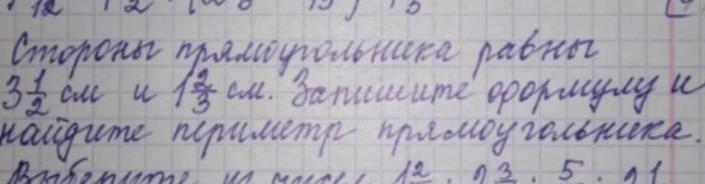 Стороны прямоугольника равны
3 1/2 см и 1 2/3 см. Запишите формулу и
найдите периметр прямоугольника.